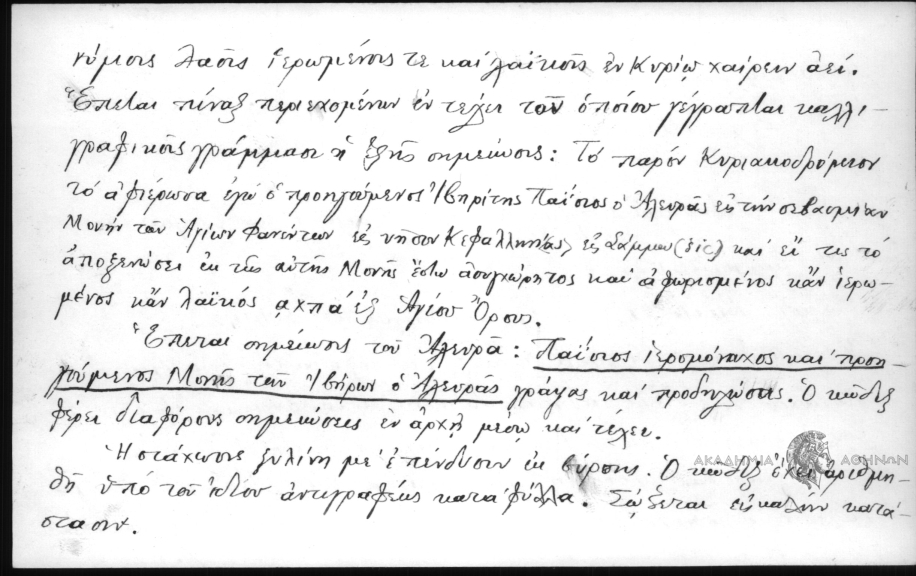 νύμοις πᾶσις ἱερωμένοις τε καὶ λαϊκοῖς ἐν Κυρίῳ χαίρειν ἀεί.
Ἕπεται πίναξ περιεχομένων ἐν τέλει τοῦ ὁποίου γέγραπται καλλι-
γραφικοῖς γράμμασι ἡ ἑξῆς σημείωσις: Τό παρόν Κυριακοδρόμιον
τό ἀφιέρωσα ἐγώ ὁ προηγούμενος Ἰβηρίτης Παΐσιος ὁ Ἀλευρᾶς εἰς τήν σεβασμίαν
Μονήν τῶν Ἁγίων Φανέντων εἰς νῆσον Κεφαλληνίας, εἰς Σάμμου (sic) καί εἴ τις τό
ἀποξενώσει ἐκ τῆς αὐτῆς Μονῆς ἔστω ἀσυγχώρητος καί ἀφωρισμένος κἄν ἱερω-
μένος κἄν λαϊκός αχπά ἐξ Ἁγίου Ὄρους.
Ἕπεται σημείωσις τοῦ Ἀλευρᾶ: Παΐσιος ἱερομόναχος καί προη-
γούμενος Μονῆς τῶν Ἰβήρων ὁ Ἀλευρᾶς γράψας καί προδηλώσας. Ὁ κῶδιξ
φέρει διαφόρους σημειώσεις ἐν ἀρχῇ μέσῳ καί τέλει.
Ἡ στάχωσις ξυλίνη μέ ἐπένδυσιν ἐκ βύρσης. Ὁ κῶδιξ ἔχει ἀριθμη-
θῆ ὑπό τοῦ ἰδίου ἀντιγραφέως κατά φύλλα. Σῴζεται εἰς καλήν κατά-
στασιν.
ΑΚΑΔΗΜΙΑ ΑΘΗΝΩΝ